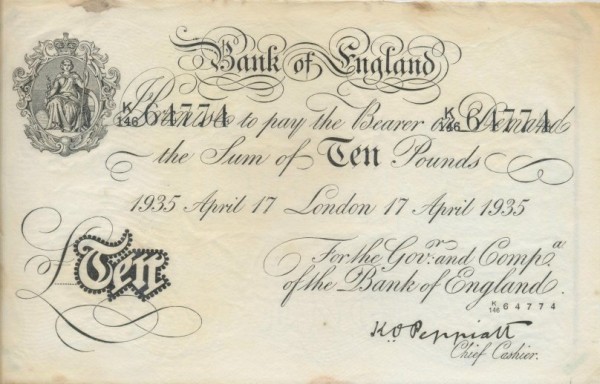 Bank of England
K/146 64774 I Promise to pay the Bearer on Demand K/146 64774
the Sum of Ten Pounds
1935 April 17 London 17 April 1935
For the Govr. and Compa.
of the Bank of England.
£Ten
K/146 64774
K.O. Peppiatt
Chief Cashier.